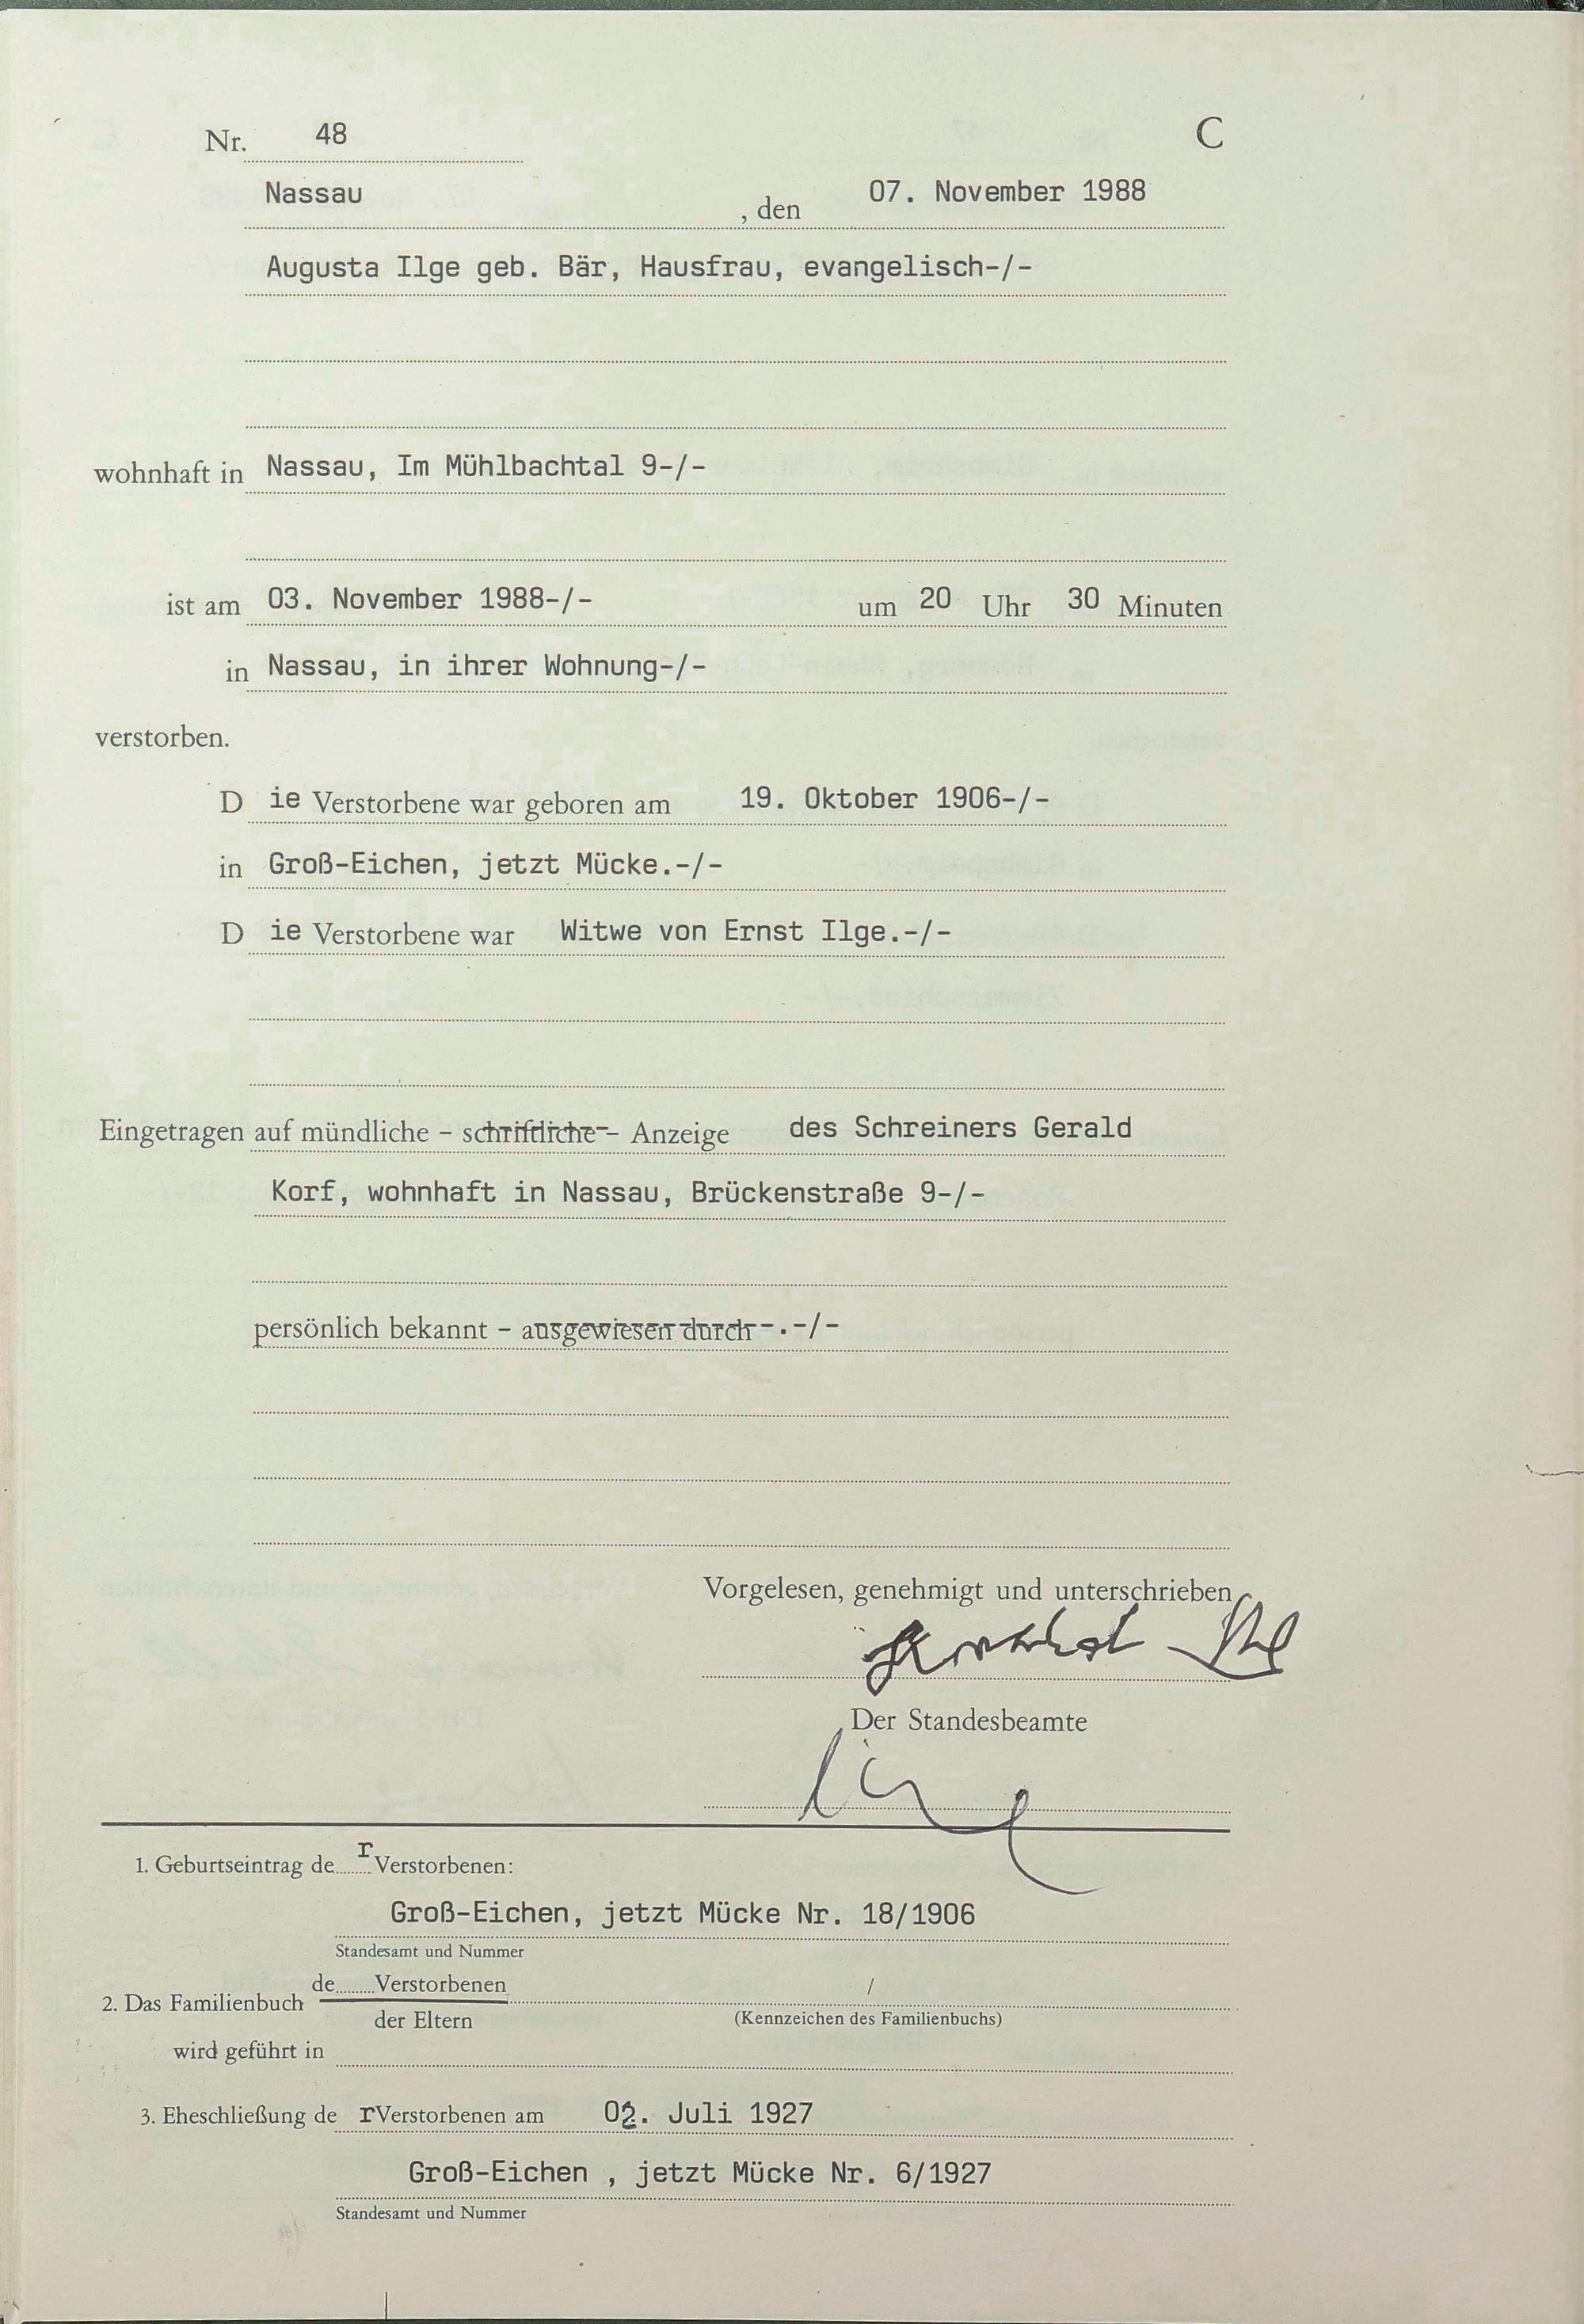 Nr. 48 C
Nassau , den 07. November 1988
Augusta Ilge geb. Bär, Hausfrau, evangelisch-/-
wohnhaft in Nassau, Im Mühlbachtal 9-/-
ist am 03. November 1988-/- um 20 Uhr 30 Minuten
in Nassau, in ihrer Wohnung-/-
verstorben.
D ie Verstorbene war geboren am 19. Oktober 1906-/-
in Groß-Eichen, jetzt Mücke.-/-
D ie Verstorbene war Witwe von Ernst Ilge.-/-
Eingetragen auf mündliche - schriftliche - Anzeige des Schreiners Gerald
Korf, wohnhaft in Nassau, Brückenstraße 9-/-
persönlich bekannt - ausgewiesen durch -.-/-
Vorgelesen, genehmigt und unterschrieben
Der Standesbeamte
1. Geburtseintrag de r Verstorbenen:
Groß-Eichen, jetzt Mücke Nr. 18/1906
Standesamt und Nummer
de Verstorbenen /
2. Das Familienbuch
der Eltern (Kennzeichen des Familienbuchs)
wird geführt in
3. Eheschließung de rVerstorbenen am 02. Juli 1927
Groß-Eichen , jetzt Mücke Nr. 6/1927
Standesamt und Nummer